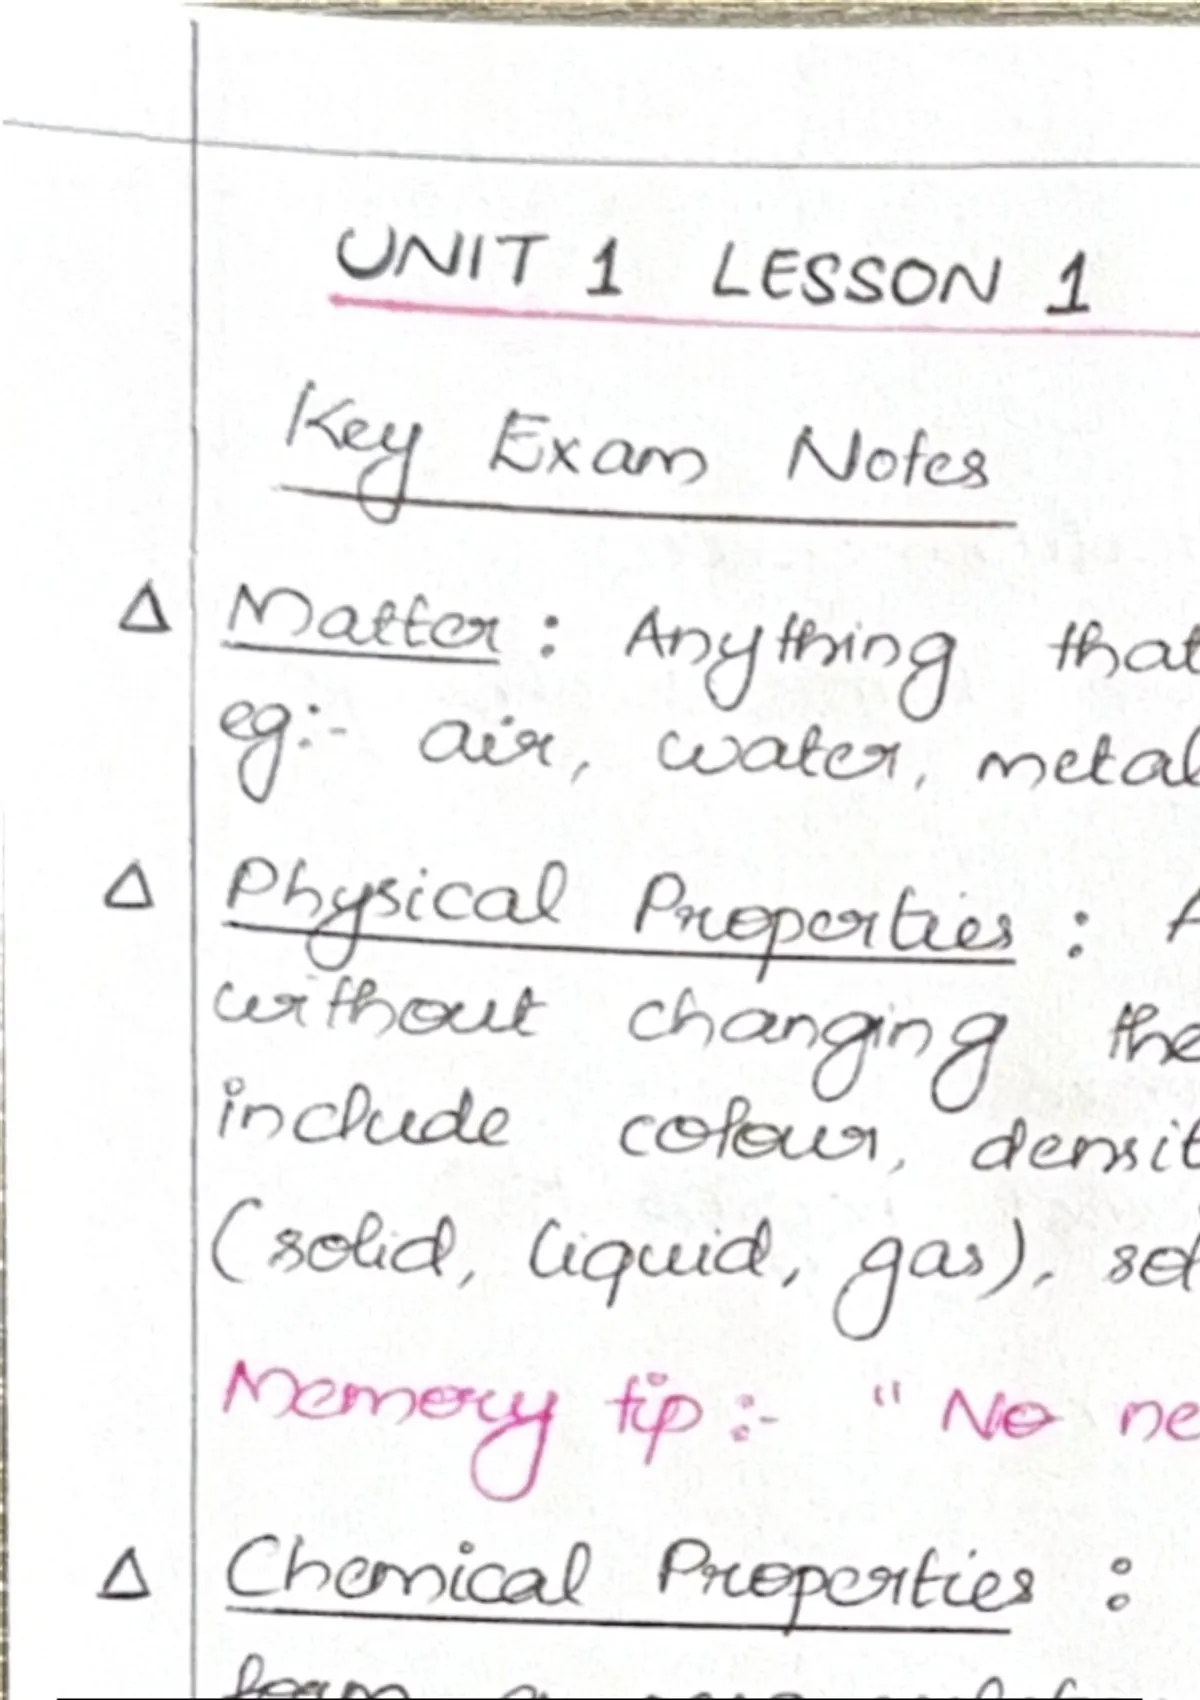 UNIT 1 LESSON 1
Key Exam Notes
Δ Matter : Anything that
eg:- air, water, metal
Δ Physical Properties : A
without changing the
include colour, densit
(solid, liquid, gas), sol
Memory tip:- " No ne
Δ Chemical Properties :